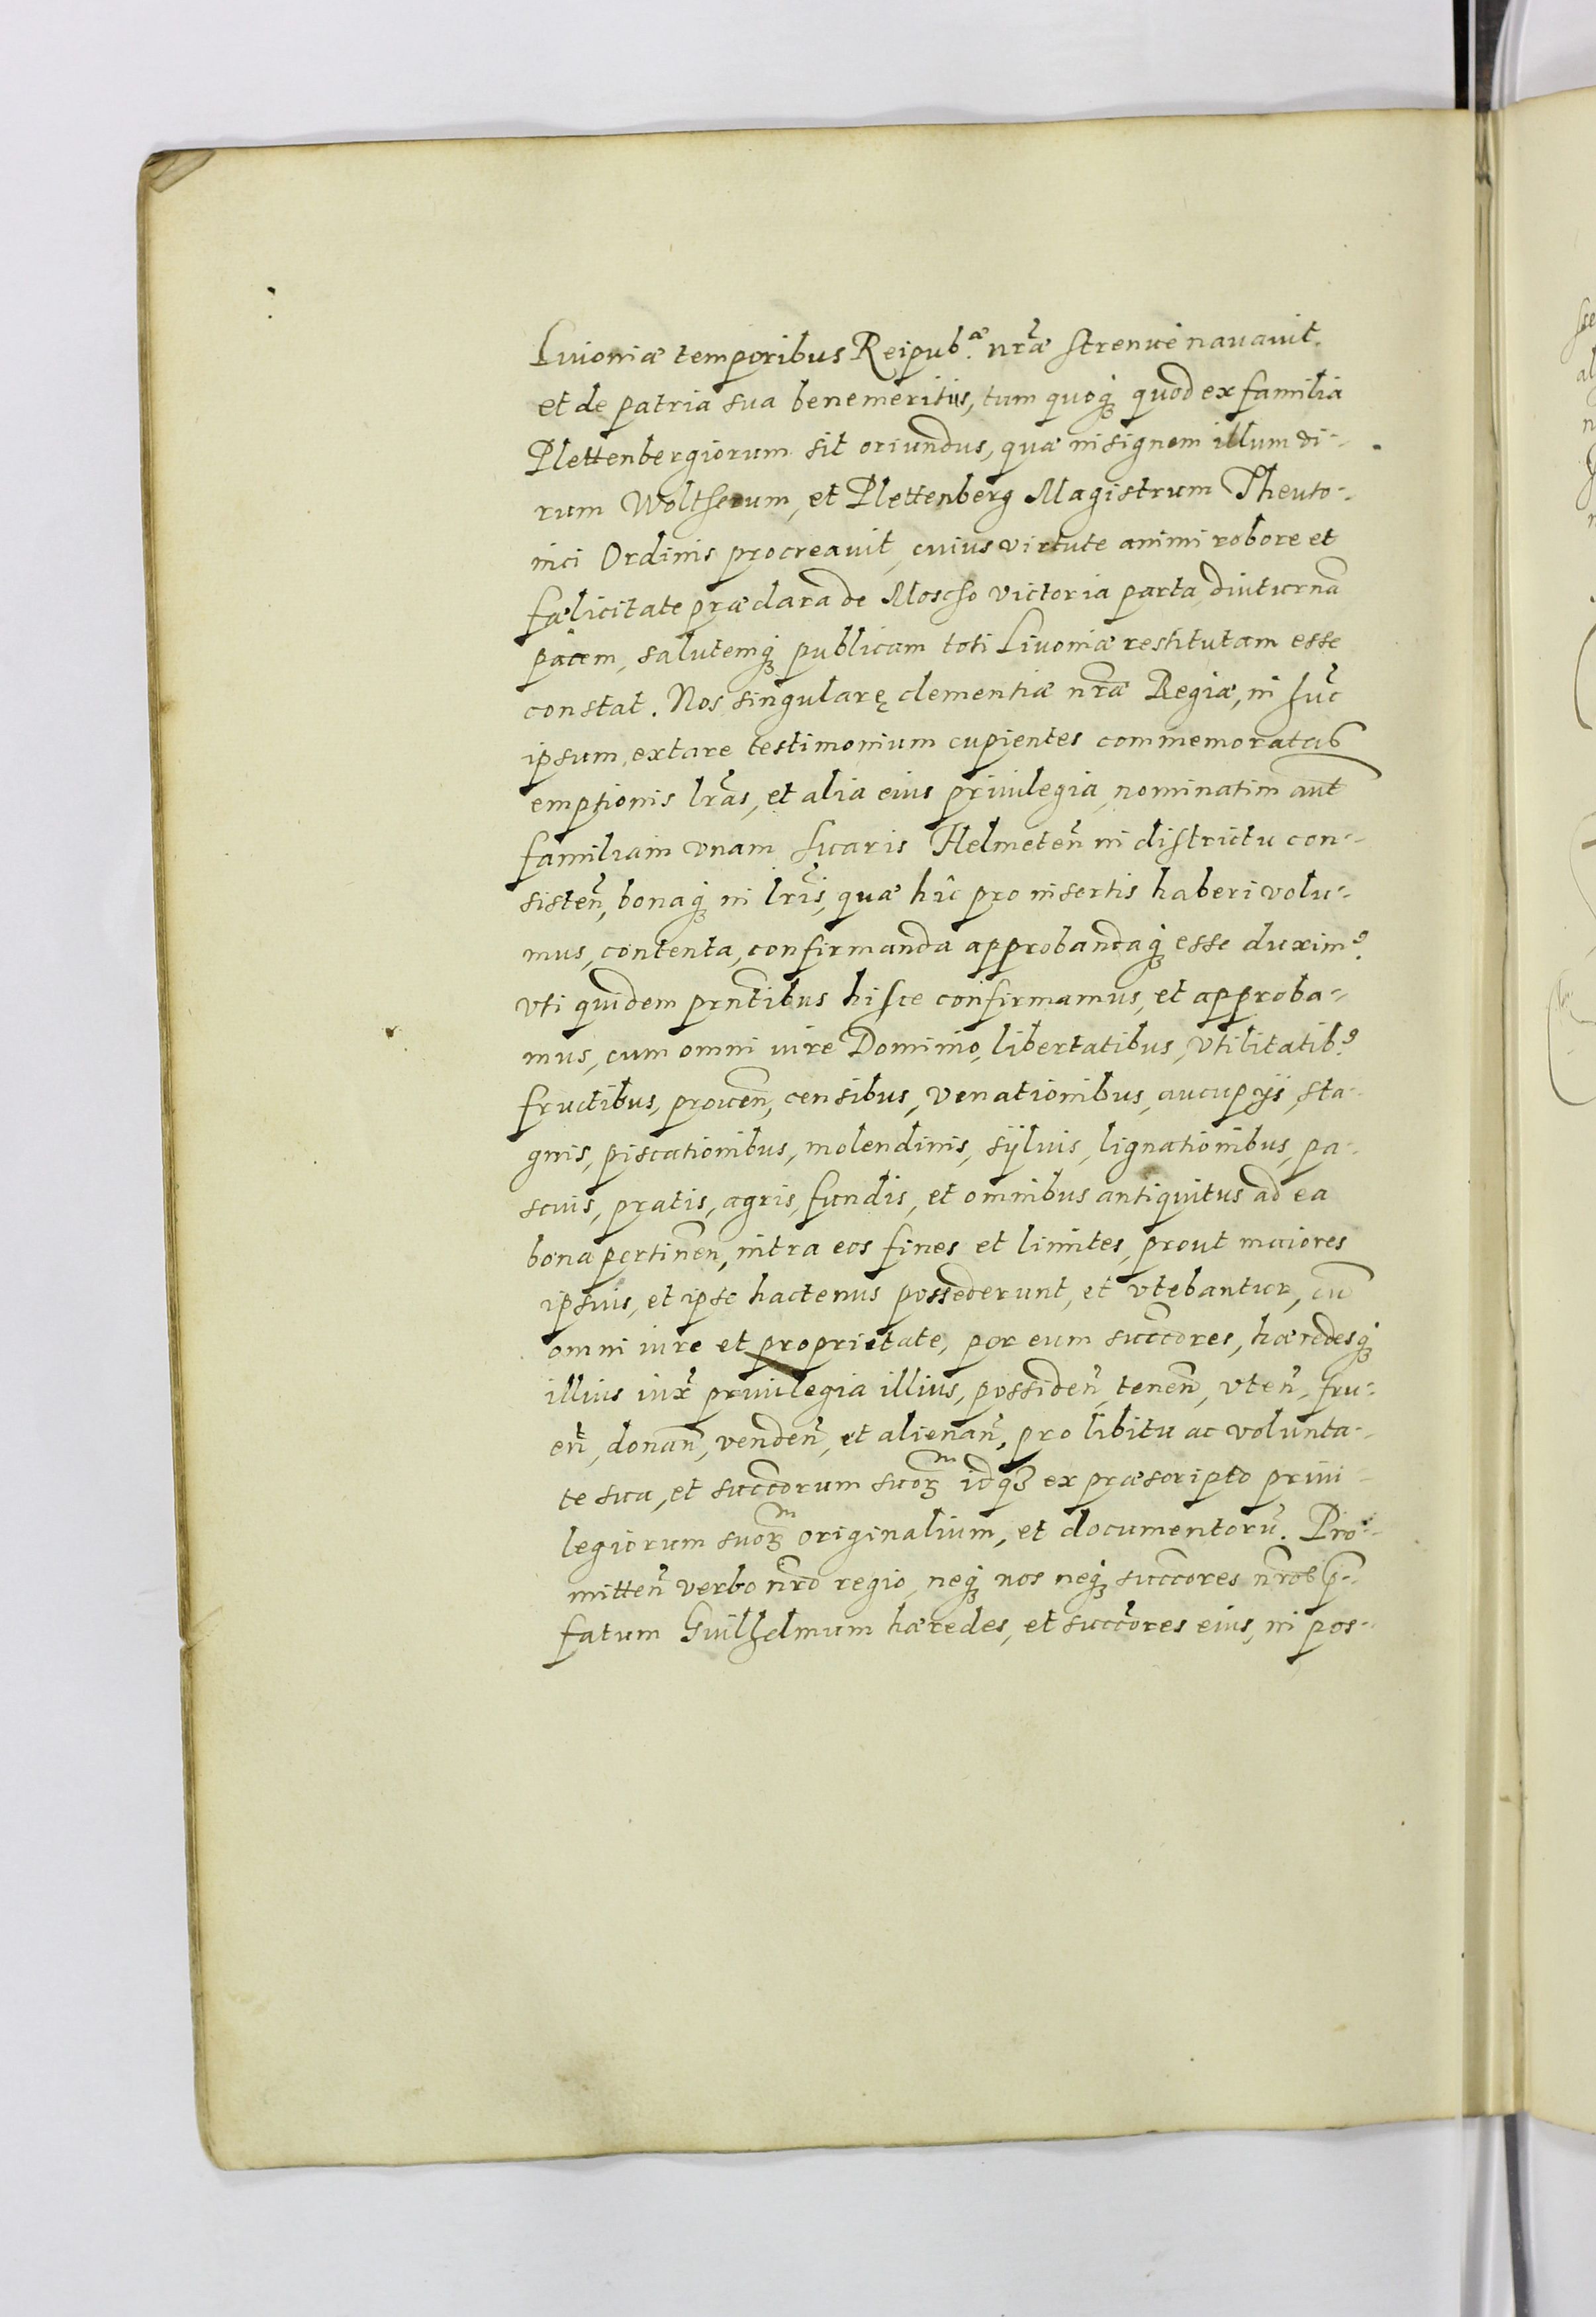 Liuoniæ temporibus Reipub.æ nr̃æ strenuè nauauit.
et de patria sua benemeritus, tum quoq́ꝫ quod ex familia
Plettenbergiorum sit oriundus, quæ insignem illum vi-
rum Woltherum, et Plettenberg Magistrum Theuto-
nici Ordinis procreauit, cuius virtute animi robore et
fælicitate præclara de Moscho victoria parta, diuturnã
pacem, salutemq́ꝫ publicam toti Liuoniæ restitutam esse
constat. Nos singularę clementiæ nr̃æ Regiæ, in huc
ipsum, extare testimonium cupientes commemoratas
emptionis lr̃as, et alia eius priuilegia, nominatim aut̃
familiam vnam Sucaris Helmeteñ in districtu con-
sisteñ, bonaq́ꝫ in lr̃is, quæ hîc pro insertis haberi volu-
mus, contenta, confirmanda approbandaq́ꝫ esse duxim9.
vti quidem prñtibus hisce confirmamus, et approba-
mus, cum omni iure Dominio, libertatibus, vtilitatib9.
fructibus, prouen̄, censibus, venationibus, aucupijs, sta-
gnis, piscationibus, molendinis, sÿluis, lignationibus, pa-
scuis, pratis, agris, fundis, et omnibus antiquitus ad ea
bona pertinen̄, intra eos fines et limites, prout maiores
ipsius, et ipse hactenus possederunt, et vtebantur, cũ
omni iure et proprietate, per eum succc̃ores, hæredesq́ꝫ
illius iux̃ priuilegia illius, possideñ, tenen̄, vteñ, fru-
eñ, donan̄, vendeñ, et alienañ, pro libitu ac volunta-
te sua, et succc̃orum suoꝝm idqꝫ ex præscripto priui-
legiorum suoꝝm originalium, et documentorũ. Pro-
mitteñ verbo nr̃o regio, neq́ꝫ nos neq́ꝫ succc̃ores nr̃os p̃-
fatum Guilhelmum hæredes, et succc̃ores eius, in pos-